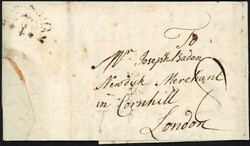 To
Mr Joseph Baden
Merchant
in Cornhill
London